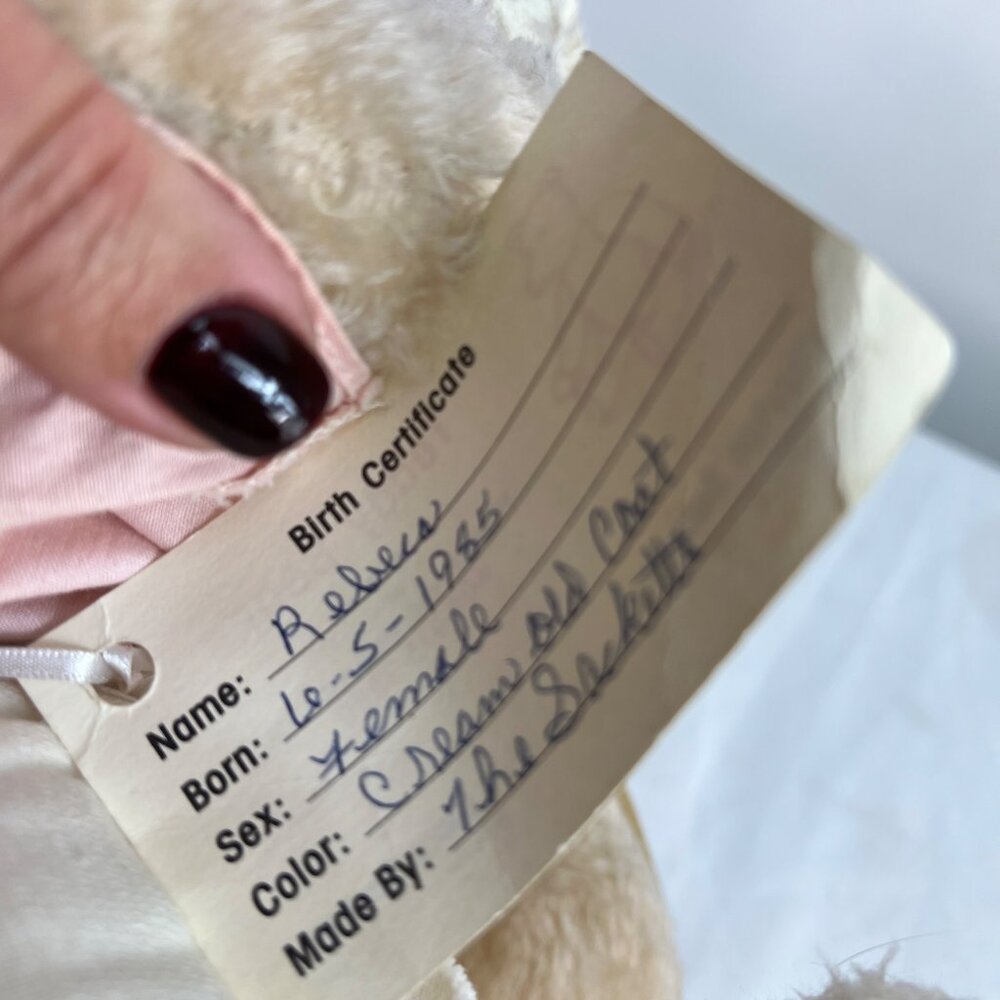 Birth Certificate
Name: Rebecca
Born: 6-5-1985
Sex: Female
Color: Cream old Coat
Made By: The Sacketts